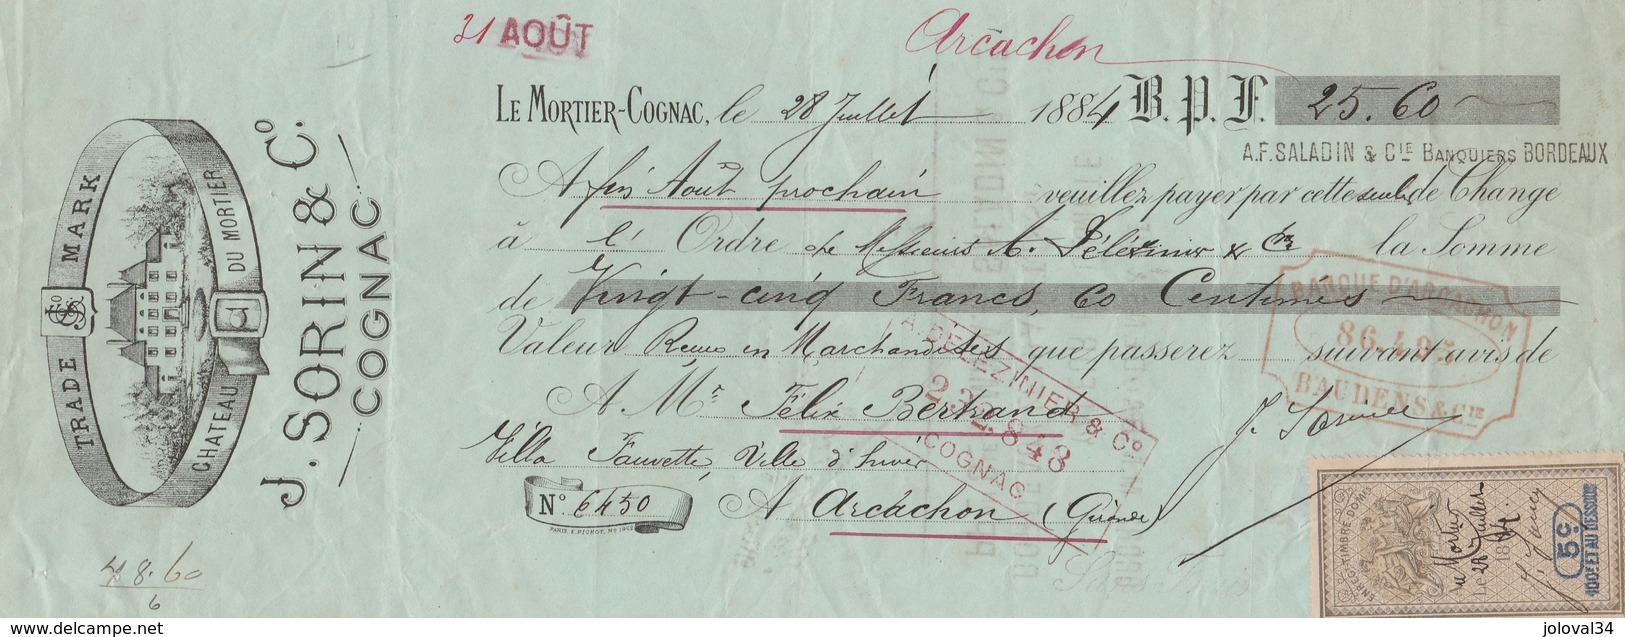 31 AOÛT
Arcachon
LE MORTIER-COGNAC, le 28 Juillet 1884 B.P.F. 25.60
A.F. SALADIN & CIE BANQUIERS BORDEAUX
A fin Août prochain veuillez payer par cette seule de Change
à l'Ordre de Messieurs A. Pélézinier & Co la Somme
de Vingt-cinq Francs, 60 Centimes
Valeur Reçue en Marchandises que passerez suivant avis de
A Mr Félix Bertrand
Villa Fauvette, Ville d'hiver
No 6450 A Arcachon (Gironde)
PARIS, E. PICHOT,
J. Sorin
TRADE MARK
CHATEAU DU MORTIER
J. SORIN & Co.
COGNAC
BANQUE D'ARCACHON
86.495
BAUDENS & CIE
A. PELEZINIER & Co
232.848
COGNAC
48.60
6
ENREG. TIMBRE DOMS.
Au Mortier
Le 28 Juillet
1884
5c.
100F ET AU DESSOUS
joloval34